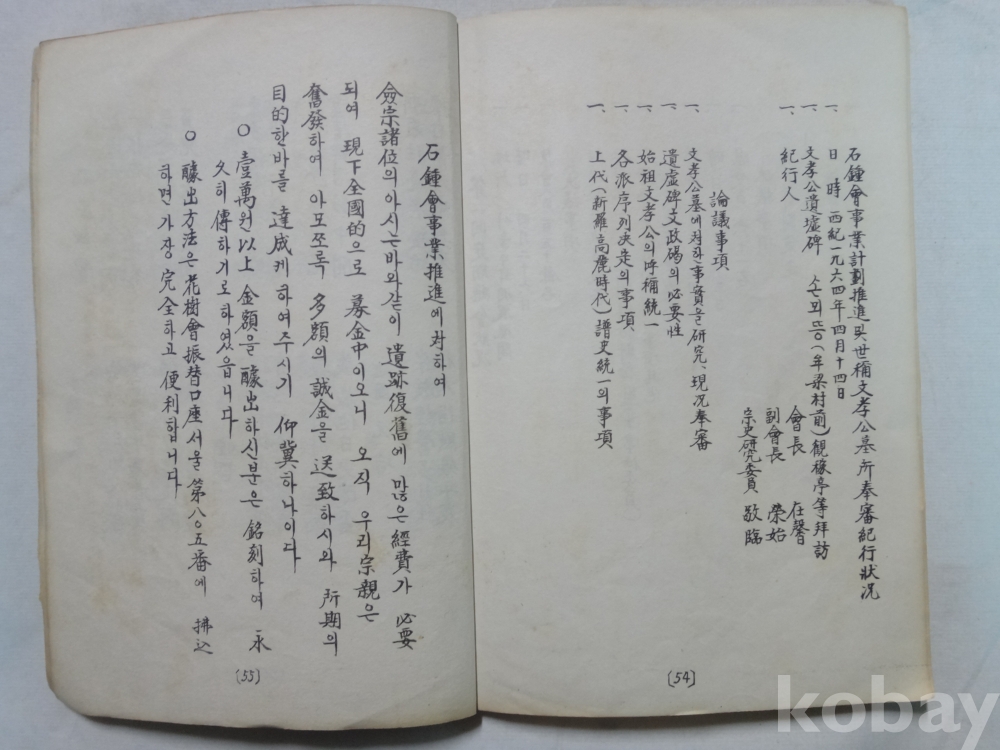 石鍾會事業計劃推進및世稱文孝公墓所奉審紀行狀况
一、 日 時 西紀一九六四年四月十四日
一、 文孝公遺墟碑 손뫼등(牟梁村前)觀稼亭等拜訪
一、 紀行人 會長 在馨
副會長 榮始
宗史硏究委員 敬臨
論議事項
一、 文孝公墓에対한事實을研究、現况奉審
一、 遺虛碑文改碣의必要性
一、 始祖文孝公의呼稱統一
一、 各派序列决定의事項、
一、 上代(新羅高麗時代)譜史統一의事項
(54)
石鍾會事業推進에対하여
僉宗諸位의아시는바와같이 遺跡復舊에많은經費가 必要
되여 現下全國的으로 募金中이오니 오직 우리宗親은
奮發하여 아모쪼록 多額의 誠金을 送致하시와 所期의
目的한바를 達成케하여주시기 仰冀하나이다
○ 壹萬원以上 金額을 醵出하신분은 銘刻하여 永
久히傳하기로하였읍니다
○ 醵出方法은花樹會振替口座서울第八〇五番에 拂込
하면가장完全하고便利합니다
(55)
kobay